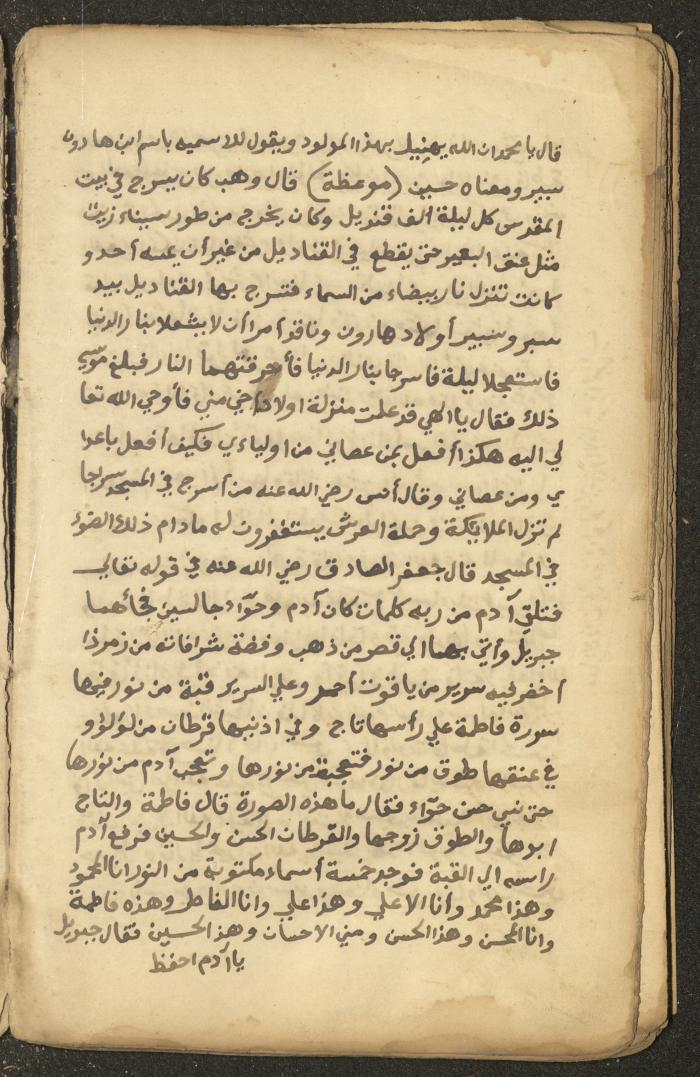 قال يا محمد ان الله يهنيك بهذا المولود ويقول لك سميه باسم ابن هارون
سبير ومعناه حسين (موعظة) قال وهب كان يسرج في بيت
المقدس كل ليلة ألف قنديل وكان يخرج من طور سيناء زيت
مثل عنق البعير حتى يقطع في القناديل من غير أن يمسه أحد و
كانت تنزل نار بيضاء من السماء فتسرج بها القناديل بيد
سبر وسبير أولاد هارون وناقد أمرا أن لا يشعلا بنار الدنيا
فاستعجلا ليلة فاسرجا بنار الدنيا فأحرقتهما النار فبلغ موسى
ذلك فقال يا الهي قد علمت منزلة اولاد اخي مني فأوحي الله تعا
لي اليه هكذا أفعل بمن عصاني من اولياءي فكيف أفعل باعدا
ي ومن عصاني وقال أنس رضي الله عنه من أسرج في المسجد سراجا
لم تزل الملايكة وحملة العرش يستغفرون له مادام ذلك الضوء
في المسجد قال جعفر الصادق رضي الله عنه في قوله تعالى
فتلقي آدم من ربه كلمات كان آدم وحوّاء جالسين فجأهما
جبريل وأتي بهما الي قصر من ذهب وفضة شرافاته من زمرذ ا
اخضر فيه سرير من ياقوت أحمر وعلي السرير قبة من نور فيها
سورة فاطمة علي رأسها تاج وفي اذنيها قرطان من لؤلؤ و
في عنقها طوق من نور فتعجبة من نورها وتعجب آدم من نورها
حتى نسي حسن حوّاء فقال ما هذه الصورة قال فاطمة والتاج
ابوها والطوق زوجها والقرطان الحسن والحسين فرفع آدم
راسه الي القبة فوجد خمسة أسماء مكتوبة من النور انا المحمود
وهذا محمد وأنا الاعلي وهذا علي وانا الفاطر وهذه فاطمة
وانا المحسن وهذا الحسن ومني الاحسان وهذا الحسين فقال جبريل
يا آدم احفظ